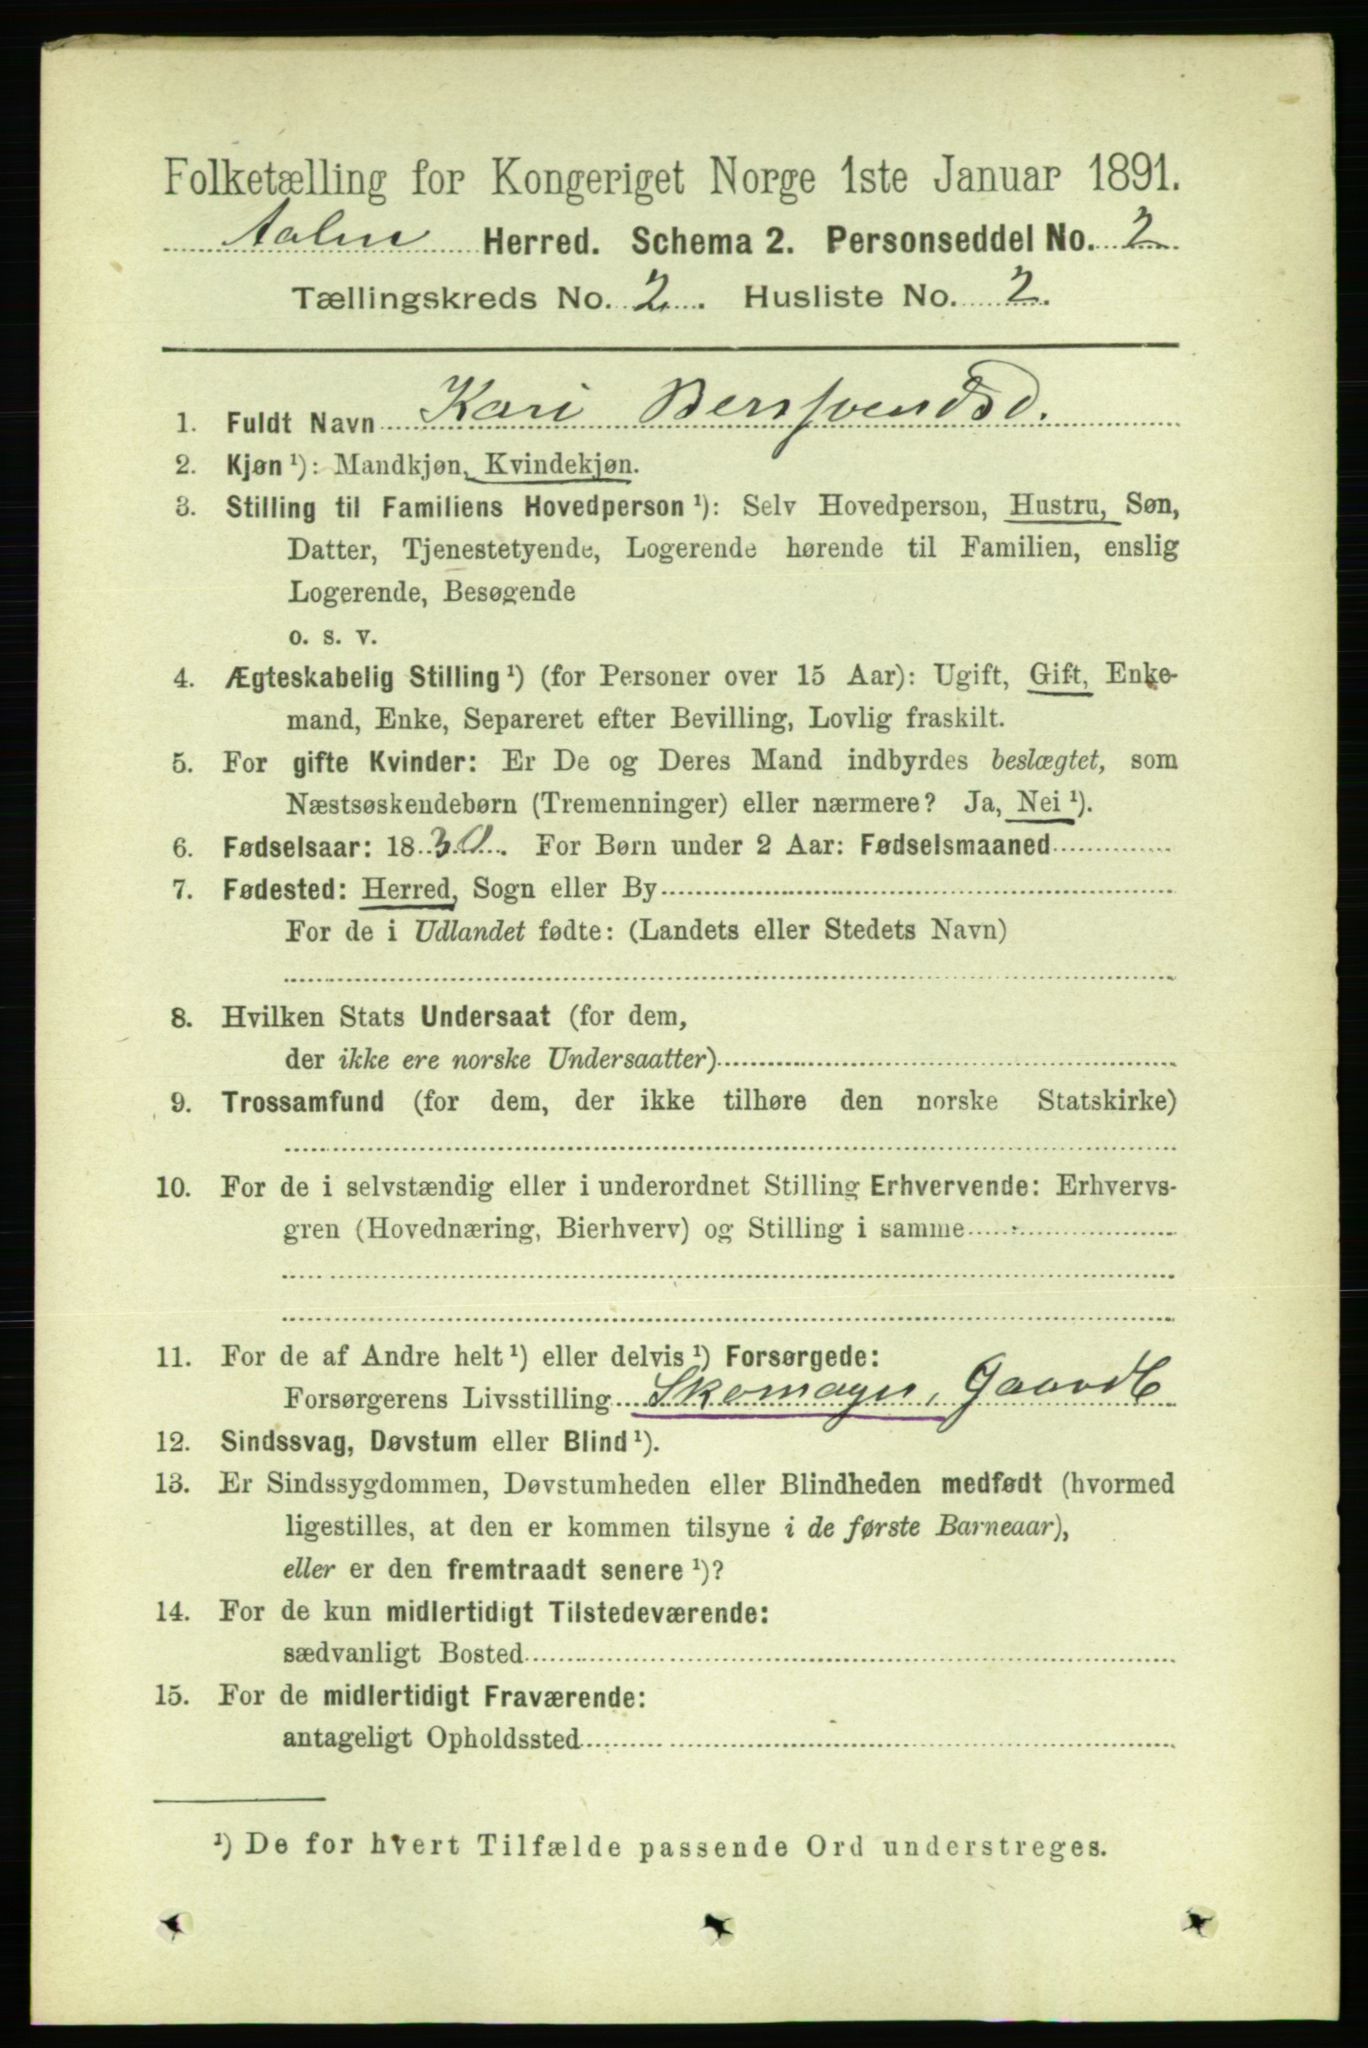 Folketælling for Kongeriget Norge 1ste Januar 1891.
Aalen Herred. Schema 2. Personseddel No. 2
Tællingskreds No. 2. Husliste No. 2.
1. Fuldt Navn Kari Bersvendsd.
2. Kjøn ¹): Mandkjøn, Kvindekjøn.
3. Stilling til Familiens Hovedperson ¹): Selv Hovedperson, Hustru, Søn,
Datter, Tjenestetyende, Logerende hørende til Familien, enslig
Logerende, Besøgende
o. s. v.
4. Ægteskabelig Stilling ¹) (for Personer over 15 Aar): Ugift, Gift, Enke-
mand, Enke, Separeret efter Bevilling, Lovlig fraskilt.
5. For gifte Kvinder: Er De og Deres Mand indbyrdes beslægtet, som
Næstsøskendebørn (Tremenninger) eller nærmere? Ja, Nei ¹).
6. Fødselsaar: 1830. For Børn under 2 Aar: Fødselsmaaned
7. Fødested: Herred, Sogn eller By
For de i Udlandet fødte: (Landets eller Stedets Navn)
8. Hvilken Stats Undersaat (for dem,
der ikke ere norske Undersaatter)
9. Trossamfund (for dem, der ikke tilhøre den norske Statskirke)
10. For de i selvstændig eller i underordnet Stilling Erhvervende: Erhvervs-
gren (Hovednæring, Bierhverv) og Stilling i samme
11. For de af Andre helt ¹) eller delvis ¹) Forsørgede:
Forsørgerens Livsstilling Skomager, Gaardb
12. Sindssvag, Døvstum eller Blind ¹).
13. Er Sindssygdommen, Døvstumheden eller Blindheden medfødt (hvormed
ligestilles, at den er kommen tilsyne i de første Barneaar),
eller er den fremtraadt senere ¹)?
14. For de kun midlertidigt Tilstedeværende:
sædvanligt Bosted
15. For de midlertidigt Fraværende:
antageligt Opholdssted
¹) De for hvert Tilfælde passende Ord understreges.